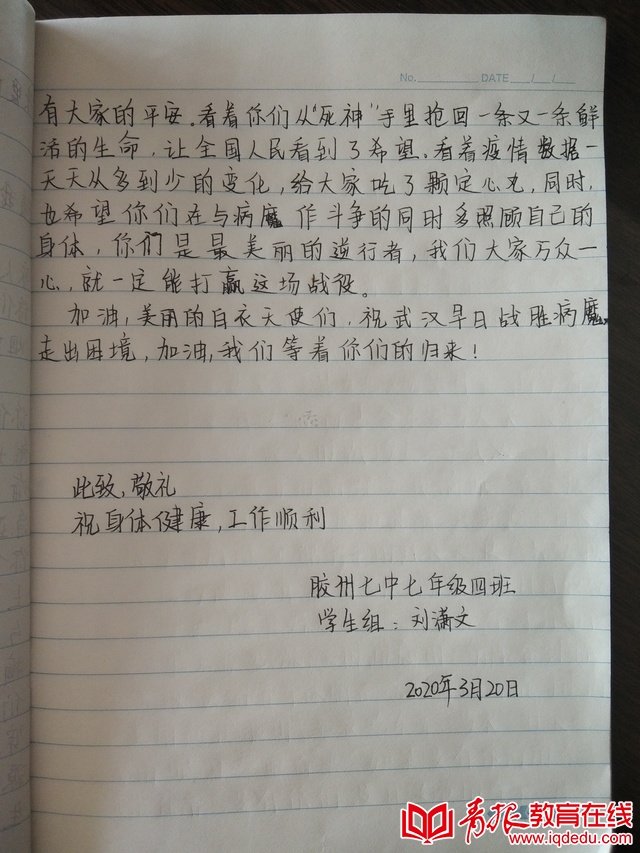 No. DATE / /
有大家的平安。看着你们从“死神”手里抢回一条又一条鲜
活的生命，让全国人民看到了希望。看着疫情数据一
天天从多到少的变化，给大家吃了颗定心丸，同时，
也希望你们在与病魔作斗争的同时多照顾自己的
身体，你们是最美丽的逆行者，我们大家万众一
心，就一定能打赢这场战役。
加油，美丽的白衣天使们，祝武汉早日战胜病魔，
走出困境，加油，我们等着你们的归来！
此致，敬礼
祝身体健康，工作顺利
胶州七中七年级四班
学生组：刘潇文
2020年3月20日
青报教育在线
www.iqdedu.com